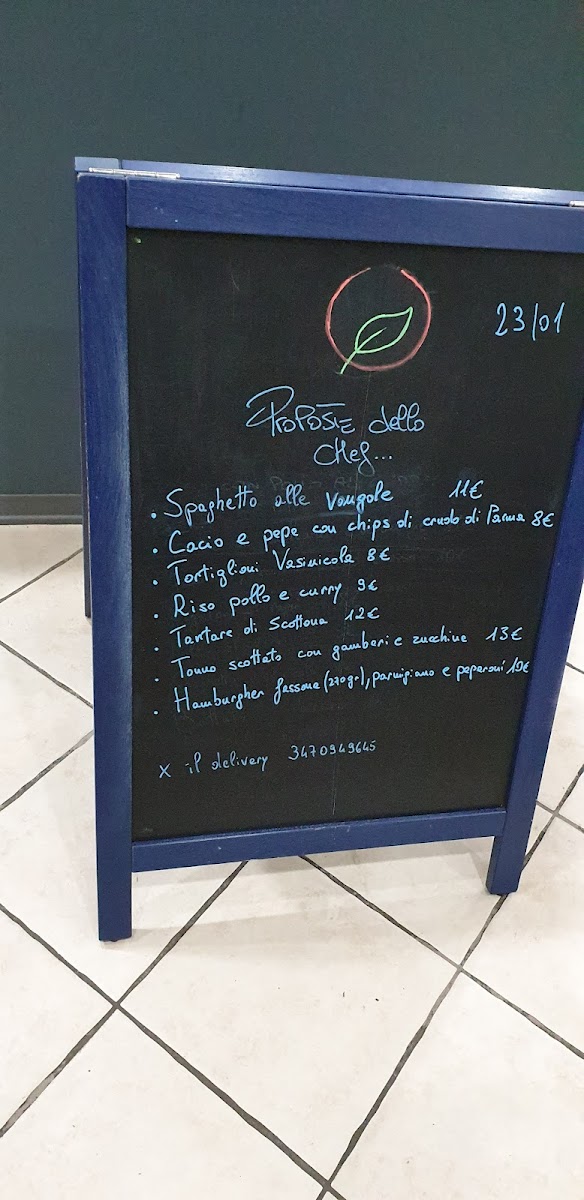 23/01
PROPOSTE dello
chef...
• Spaghetto alle vongole 11€
• Cacio e pepe con chips di crudo di Parma 8€
• Tortiglioni Vasinicola 8€
• Riso pollo e curry 9€
• Tartare di Scottona 12€
• Tonno scottato con gamberi e zucchine 13€
• Hamburgher fassona (220gr), parmigiano e peperoni 10€
x il delivery 3470949645